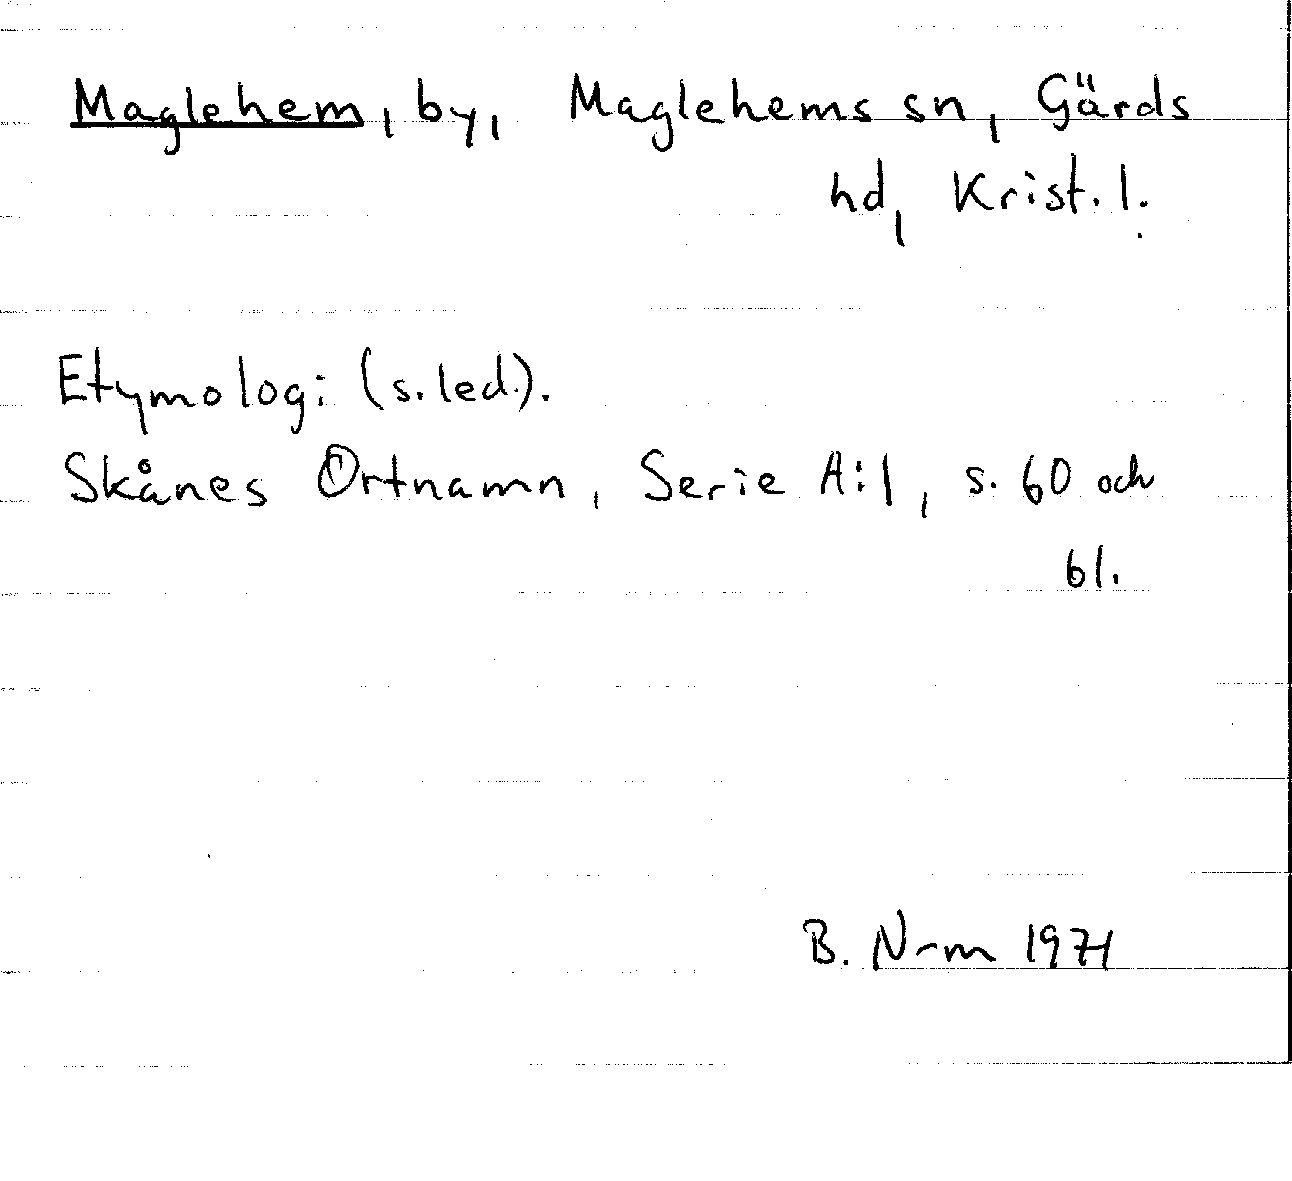 Maglehem, by, Maglehems sn, Gärds
hd, Krist. l.
Etymologi (s. led.).
Skånes Ortnamn, Serie A:1, s. 60 och
61.
B. N-m 1971